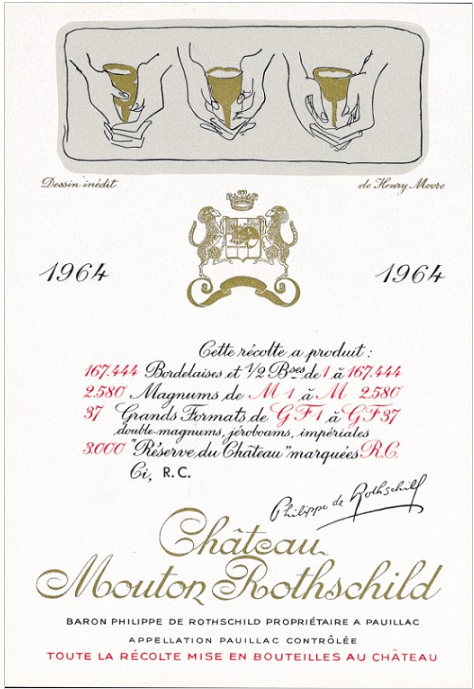 Dessin inédit
de Henry Moore
1964
1964
Cette récolte a produit :
167.444 Bordelaises et 1/2 Bses de 1 à 167.444
2.580 Magnums de M 1 à M 2.580
37 Grands Formats de G F 1 à G F 37
double-magnums, jéroboams, impériales
3.000 "Réserve du Château" marquées R.C.
Ci, R.C.
Philippe de Rothschild
Château
Mouton Rothschild
BARON PHILIPPE DE ROTHSCHILD PROPRIÉTAIRE A PAUILLAC
APPELLATION PAUILLAC CONTRÔLÉE
TOUTE LA RÉCOLTE MISE EN BOUTEILLES AU CHÂTEAU